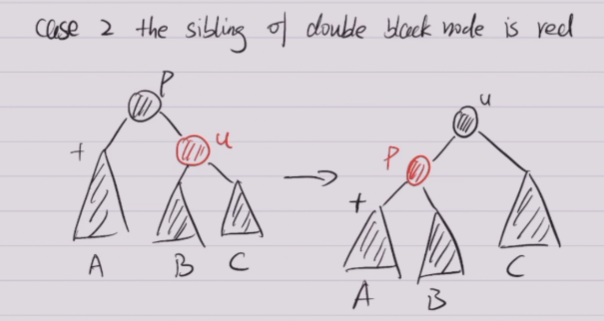 case 2 the sibling of double black node is red
P
u
+
A
B
C
u
P
+
A
B
C